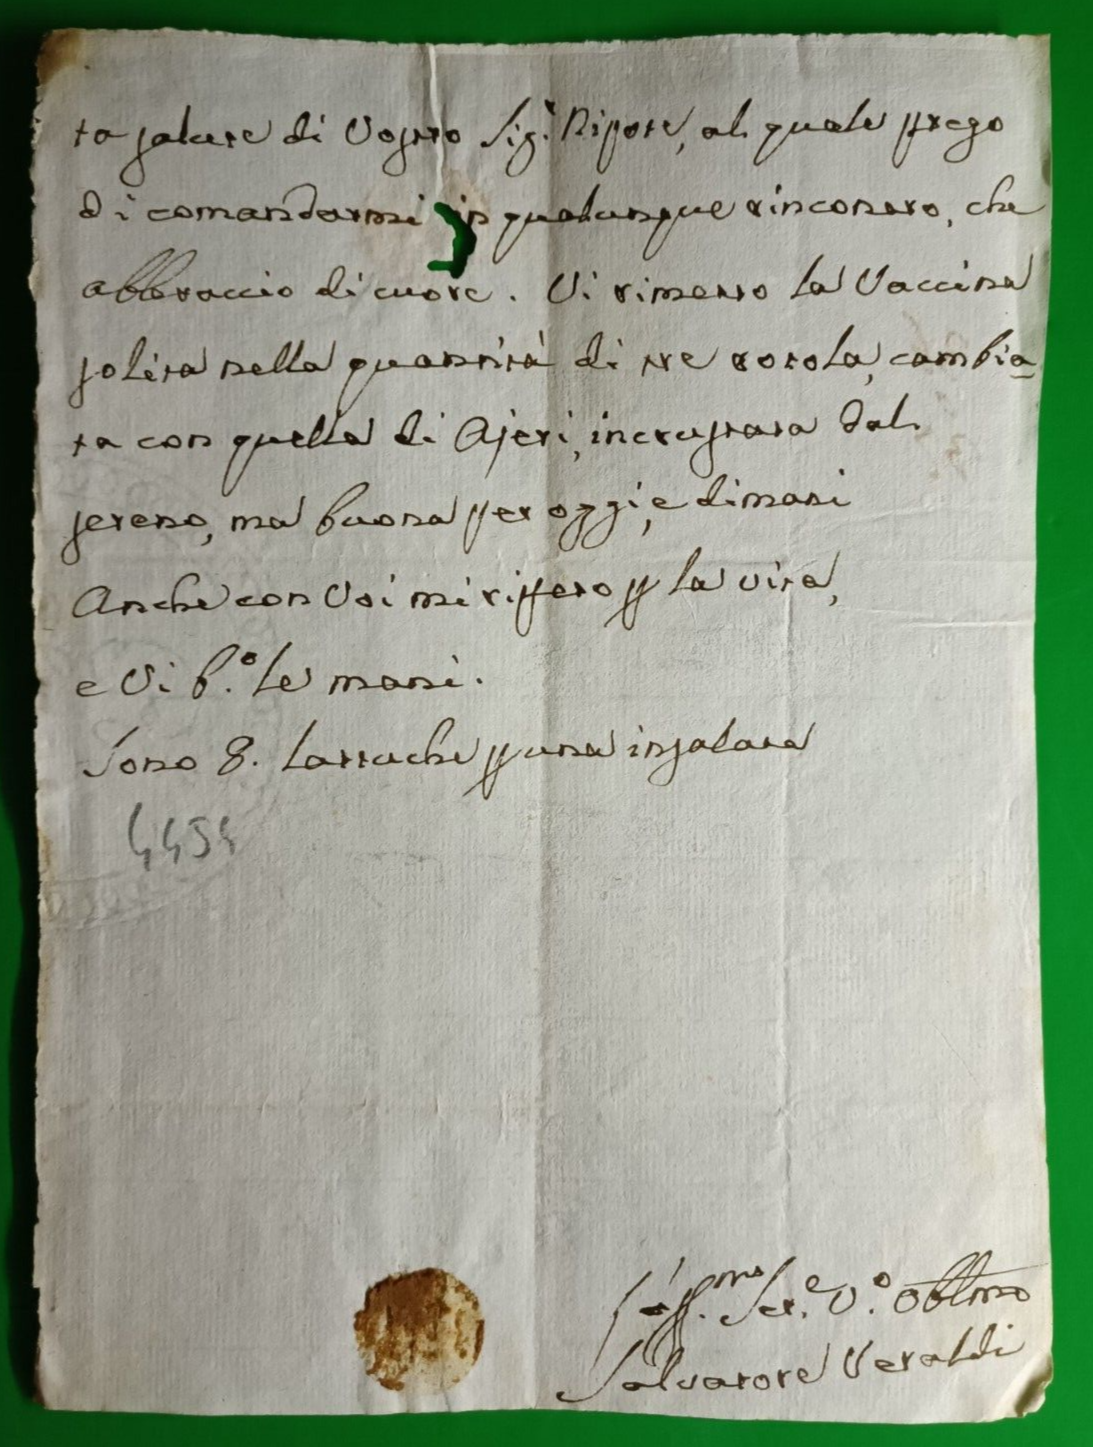 ta salute di Vostro Sig.r Nipote, al quale prego
di comandarmi in qualunque rincontro, che
abbraccio di cuore. Vi rimetto la Vaccina
solita nella quantità di tre rotola, cambia
ta con quella di Ajeri, incrustata dal
sereno, ma buona per oggi, e dimani
Anche con Voi mi ripeto p la vita,
e Vi b.o le mani.
Sono 8. lattuche p una insalata
4454
aff.mo Ser.e V.o obbl.mo
Salvatore Veraldi